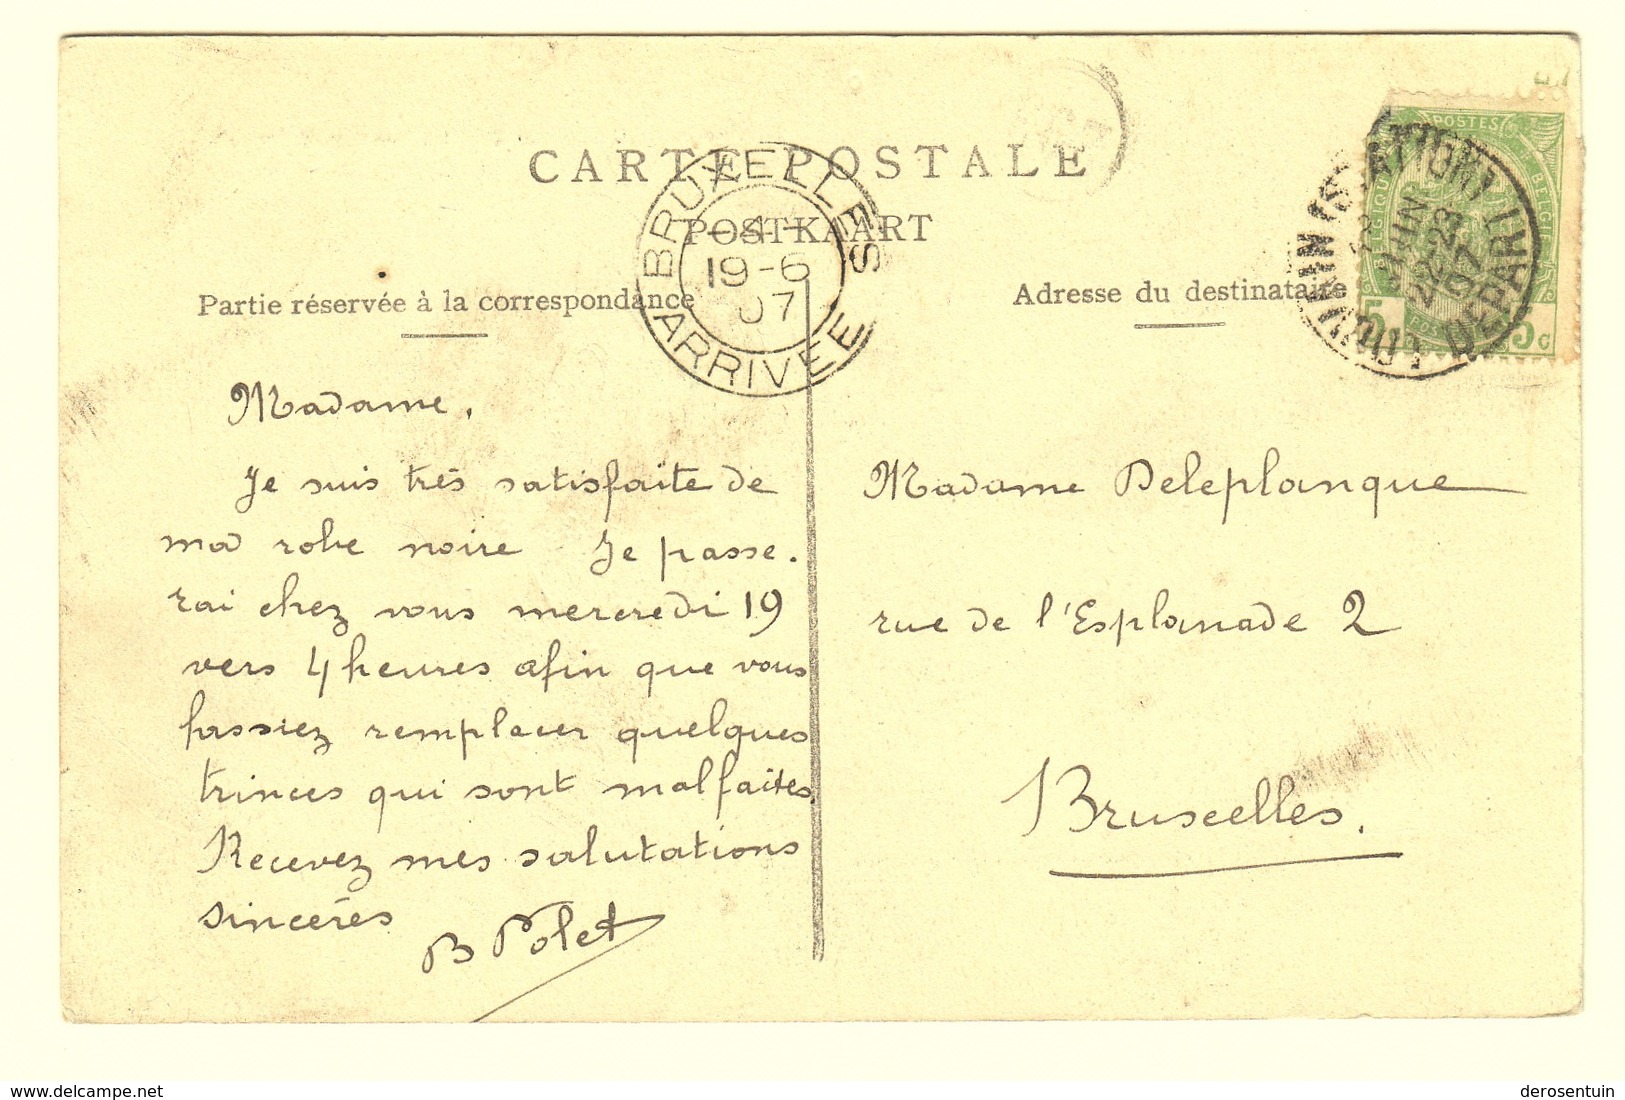 CARTE POSTALE
POSTKAART
Partie réservée à la correspondance
Adresse du destinataire
BRUXELLES
4
19-6
07
ARRIVEE
POSTES
BELGIQUE
BELGIE
5c
(STATION)
JUIN
22-23
07
DEPART
Madame,
Je suis très satisfaite de
ma robe noire Je passe-
rai chez vous mercredi 19
vers 4 heures afin que vous
fassiez remplacer quelques
trinces qui sont malfaites.
Recevez mes salutations
sincères
B Polet
Madame Deleplanque
rue de l'Esplanade 2
Bruxelles.
delcampe.net
derosentuin